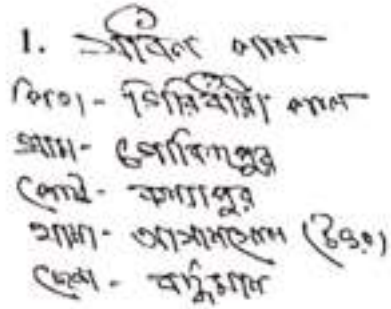 1. সাবিল পাল
পিতা - গিরিধারী পাল
গ্রাম - গোবিন্দপুর
পোষ্ট - কল্যাপুর
থানা - আসানসোল (উঃ)
জেলা - বর্দ্ধমান